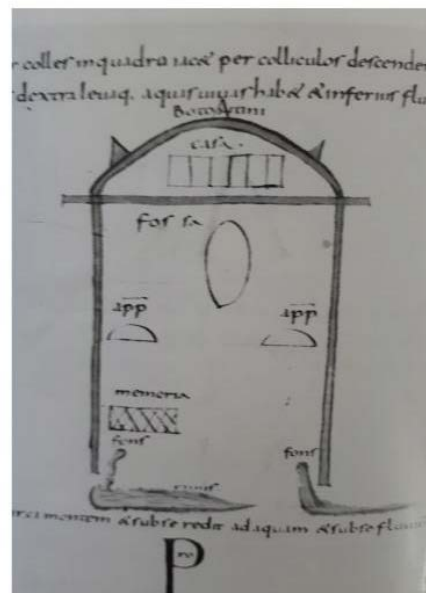 colles inquadra iac& per colliculos descende
dextra leuaq. aquas uiuas hab& & inferius flu
Botontini
casa.
fossa
app app
memoria
fons fons
riuus
montem & sub se redit ad aquam & sub se
Pro